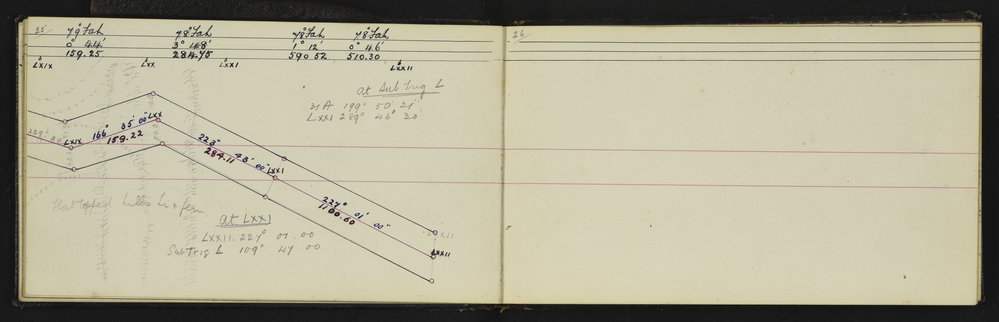 25
79° Fah 78° Fah 78° Fah 78° Fah
0° 44' 3° 48' 1° 12' 0° 46'
159.25 284.75 590 52 510.30
LXIX LXX LXXI LXXII
at Sub Trig L
31A 199° 50' 21"
LXXI 289° 46° 20'
LXIX 166° 35' 00" LXX
159.22
223° 43' 00" LXXI
284.11
227° 01' 00"
1100.60
LXXII
LXXII
Flat topped hills & fern
at LXXI
LXXII. 227° 01 00
Sub Trig L 109° 47 00
26